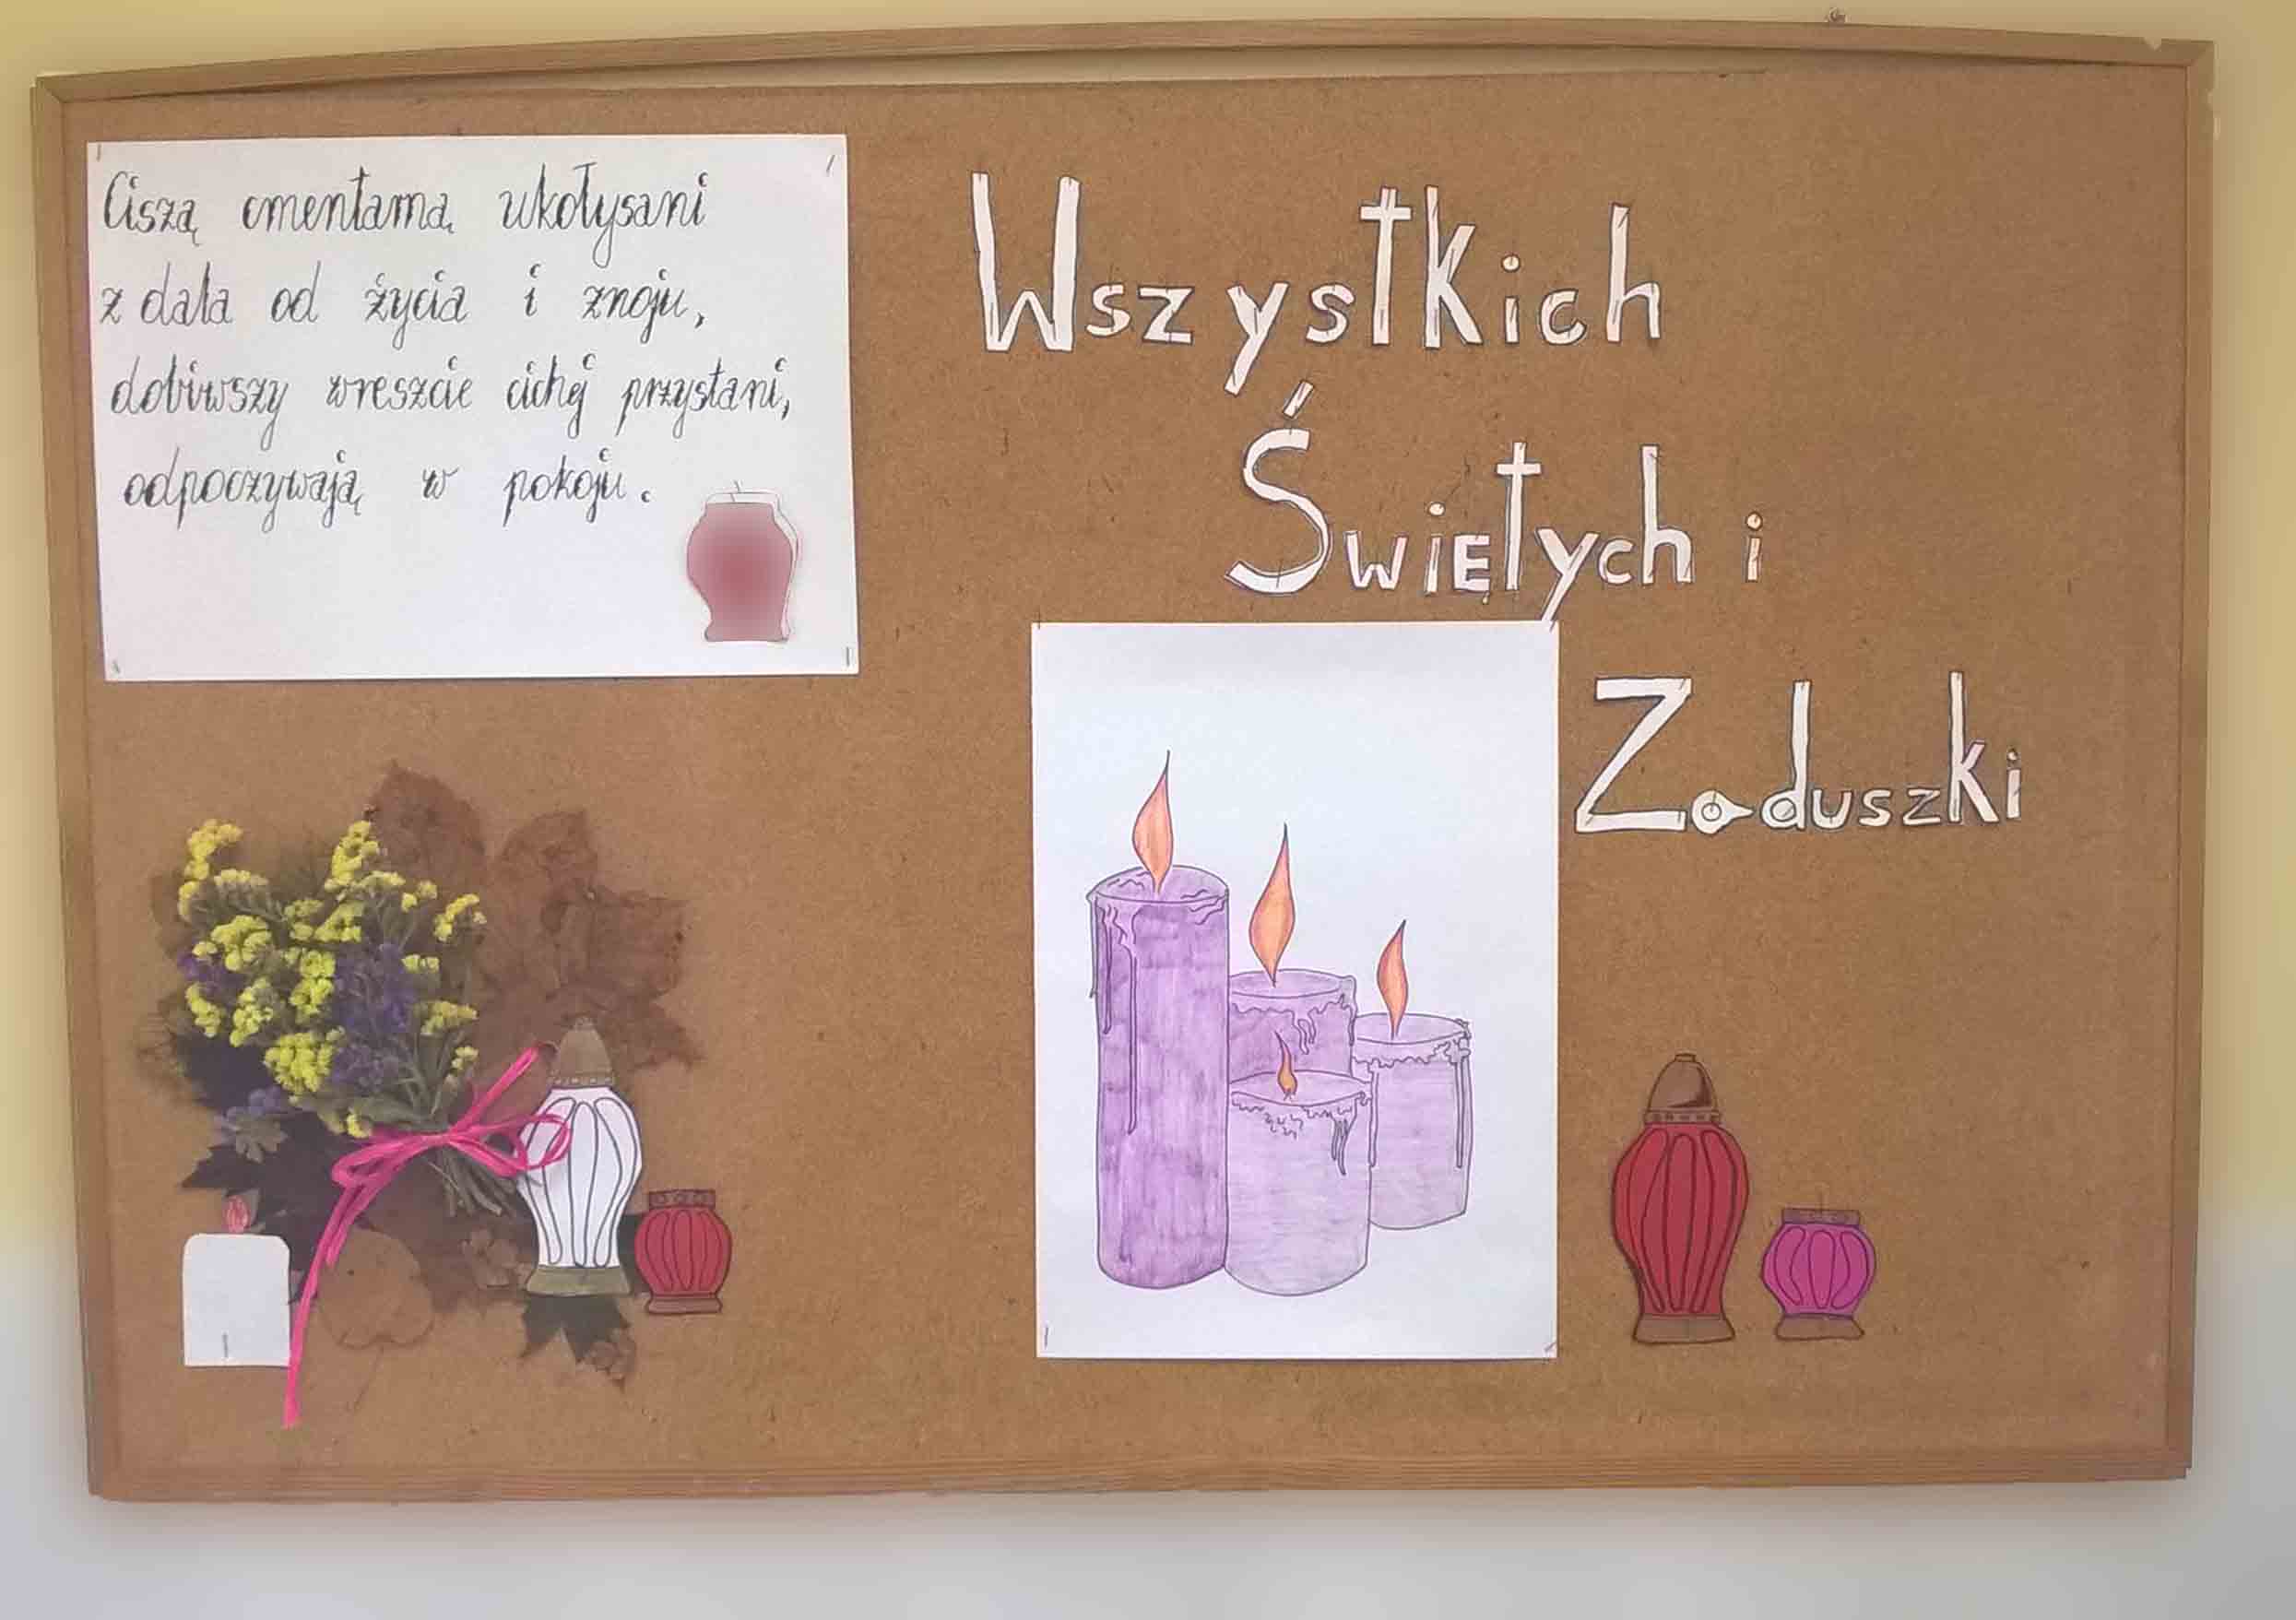 Ciszą cmentarną ukołysani
z dala od życia i znoju,
dobiwszy wreszcie cichej przystani,
odpoczywają w pokoju.
Wszystkich
Świętych i
Zaduszki